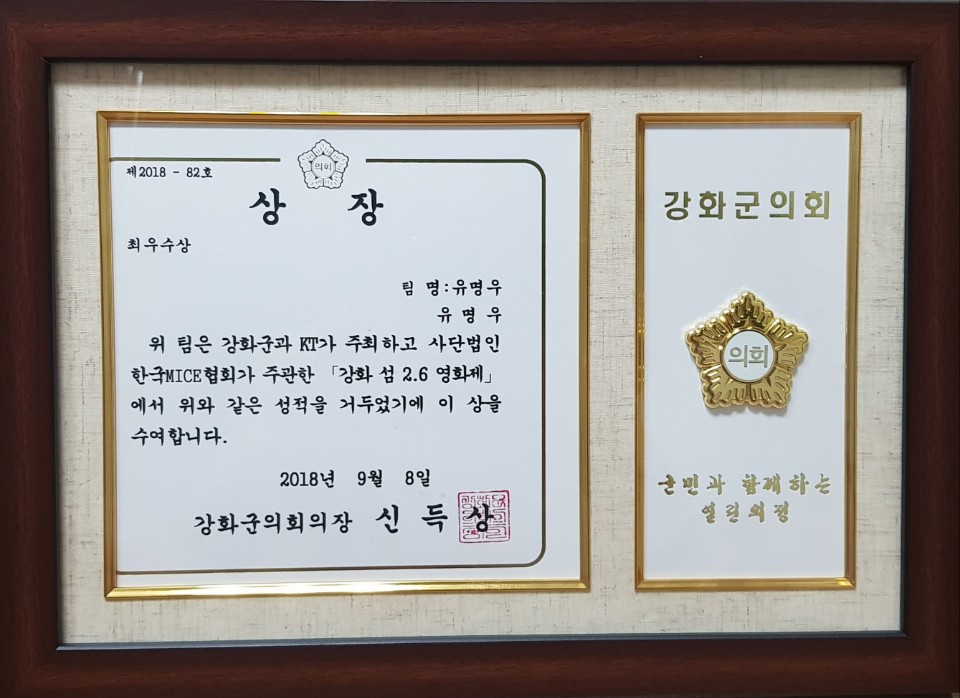 제2018 - 82호
의회
상 장
최우수상
팀 명:유명우
유 명 우
위 팀은 강화군과 KT가 주최하고 사단법인
한국MICE협회가 주관한 「강화 섬 2.6 영화제」
에서 위와 같은 성적을 거두었기에 이 상을
수여합니다.
2018년 9월 8일
강화군의회의장 신 득 상
강화군의회
의회
군민과 함께하는
열린의정